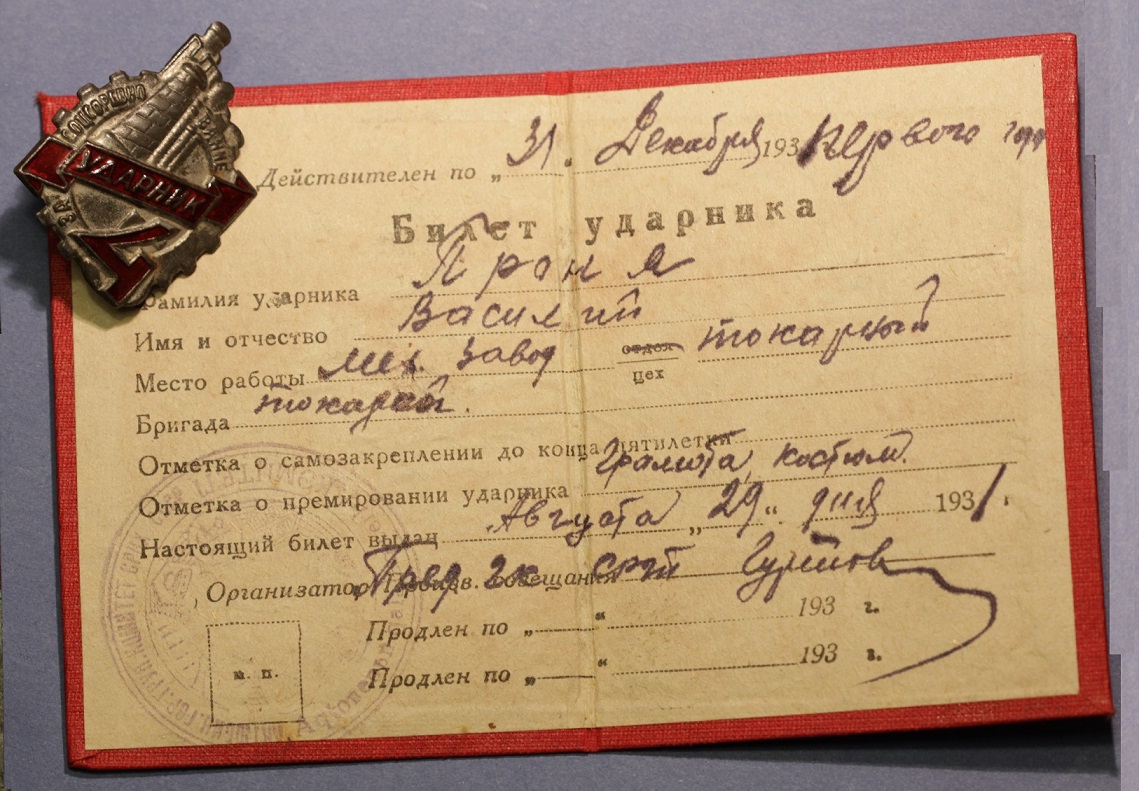 СОЦСОРЕВНО
ВАНИЕ
ЗА
УДАРНИК
Действителен по „ 31 „ Декабря 193 первого года
Билет ударника
Фамилия ударника Проня
Имя и отчество Василий
Место работы Мех. завод отдел цех токарный
Бригада токарной.
Отметка о самозакреплении до конца пятилетки
Отметка о премировании ударника Грамота, костюм.
Настоящий билет выдан Августа „ 29 “ дня 1931 г
Организатор Произв. совещания Пред
Продлен по „ “ 193 г.
Продлен по „ “ 193 г.
м. п.